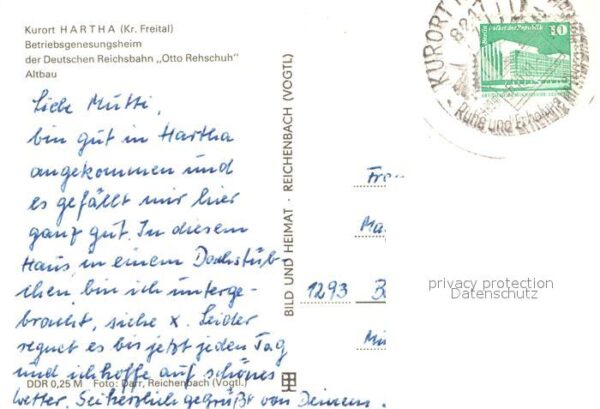 Kurort HARTHA (Kr. Freital)
Betriebsgenesungsheim
der Deutschen Reichsbahn „Otto Rehschuh"
Altbau
Liebe Mutti,
bin gut in Hartha
angekommen und
es gefällt mir hier
ganz gut. In diesem
Haus, in einem Dachstüb-
chen bin ich unterge-
bracht, siehe x. Leider
regnet es bis jetzt jeden Tag
und ich hoffe auf schönes
Wetter. Sei herzlich gegrüßt von Deinem
DDR 0,25 M Foto: Darr, Reichenbach (Vogtl.)
BILD UND HEIMAT · REICHENBACH (VOGTL)
KURORT
Ruhe und Erholung
10
Fra
Ma
1293 B
privacy protection
Datenschutz